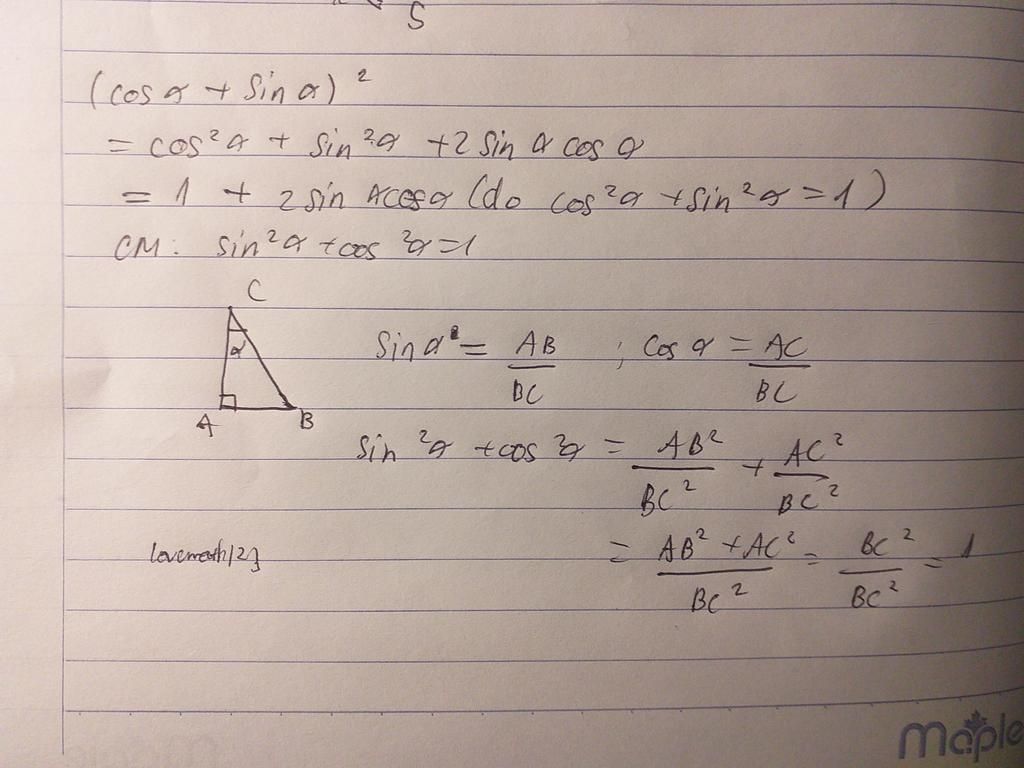 S
(cos α + sin α)²
= cos²α + sin²α + 2 sin α cos α
= 1 + 2 sin α cos α (do cos²α + sin²α = 1)
CM: sin²α + cos²α = 1
C
α
A B
sin α = AB/BC ; cos α = AC/BC
sin²α + cos²α = AB²/BC² + AC²/BC²
= (AB² + AC²)/BC² = BC²/BC² = 1
lovemath123
Maple